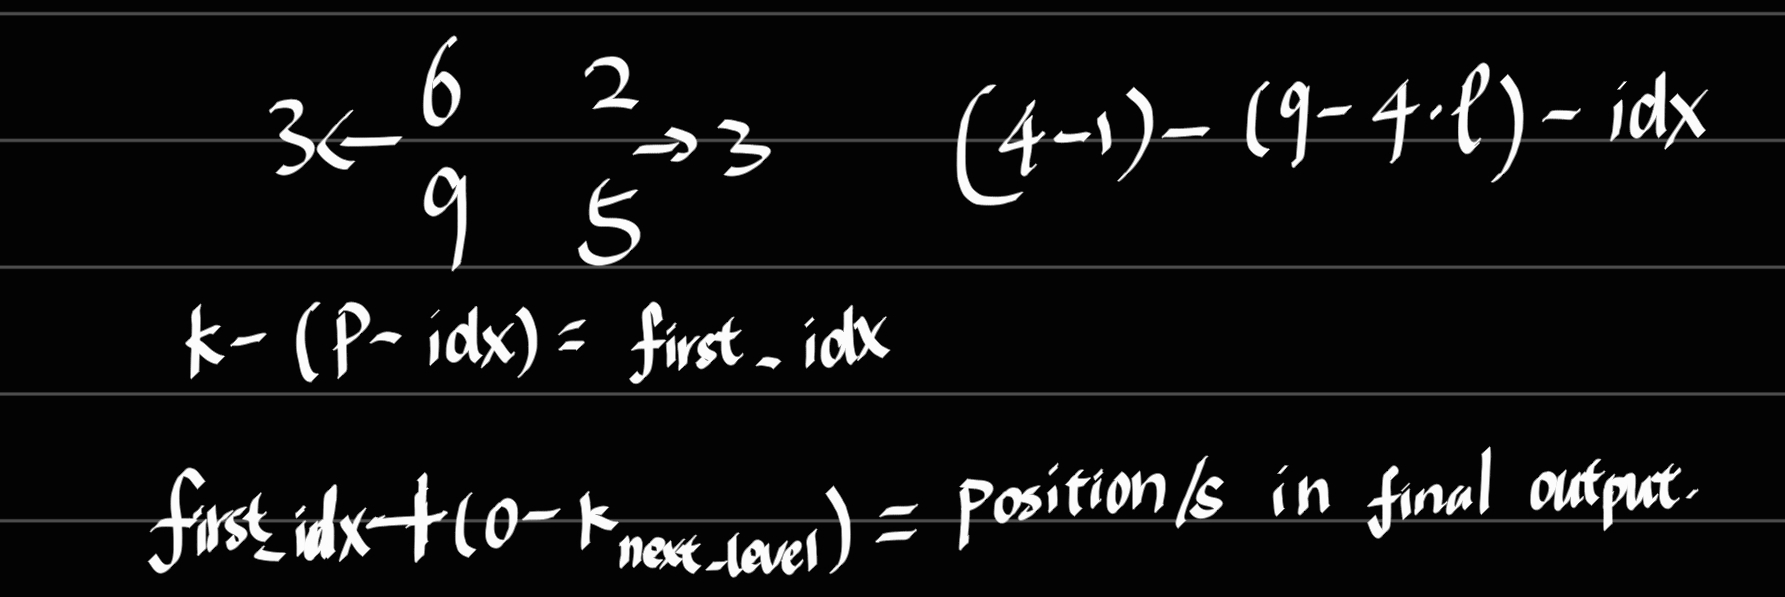 6 2
3← →3 (4-1)- (9-4·l)- idx
9 5
k- (p- idx) = first_idx
first_idx+(0-k next_level) = position/s in final output.